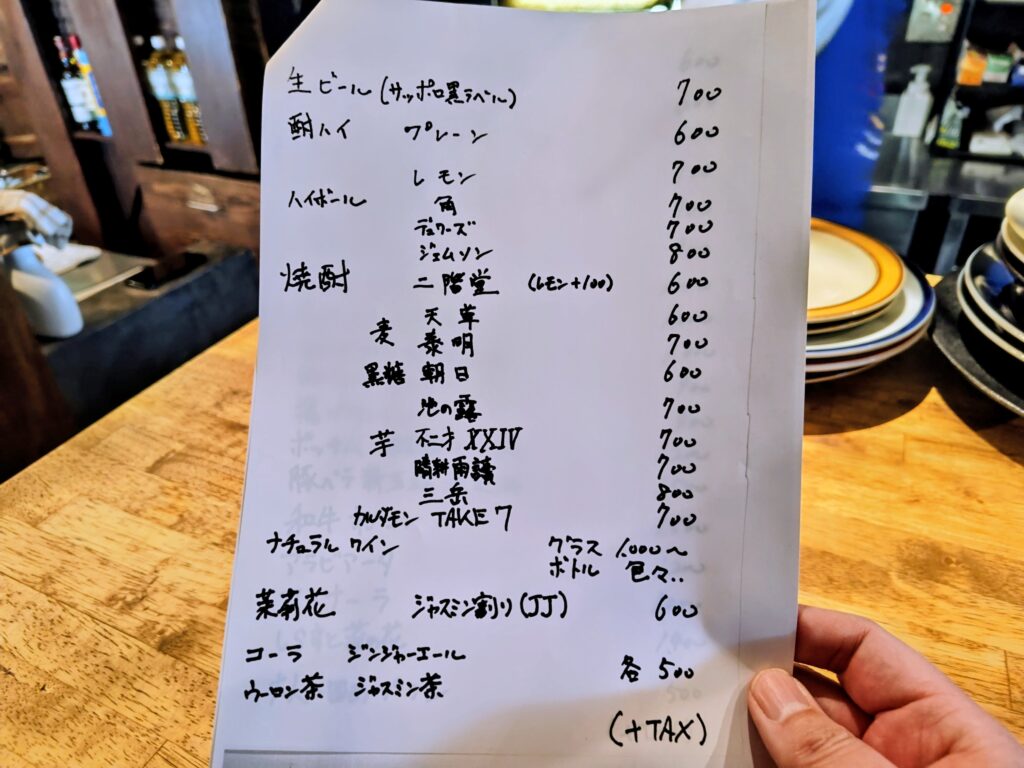 生ビール (サッポロ黒ラベル) 700
酎ハイ プレーン 600
レモン 700
ハイボール 角 700
デュワーズ 700
ジェムソン 800
焼酎 二階堂 (レモン+100) 600
天草 600
麦 泰明 700
黒糖 朝日 600
池の露 700
芋 不二才 XXIV 700
晴耕雨読 700
三岳 800
カルダモン TAKE7 700
ナチュラルワイン グラス 1,000〜
ボトル 色々..
茉莉花 ジャスミン割り(JJ) 600
コーラ ジンジャーエール
ウーロン茶 ジャスミン茶 各500
(+TAX)